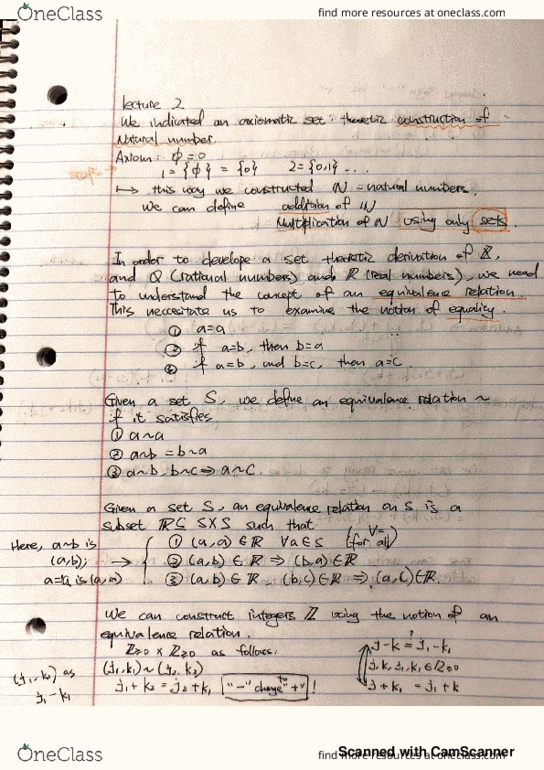 OneClass
find more resources at oneclass.com
lecture 2
We indicated an axiomatic set: theoretic construction of
Natural number.
Axiom: ϕ=0
steps
1={ϕ}={0} 2={0,1}...
↦ this way we constructed ℕ = natural numbers.
We can define addition of ℕ
Multiplication of ℕ using only sets.
In order to develop a set theoretic derivation of ℤ,
and Q (rational numbers) and ℝ (real numbers), we need
to understand the concept of an equivalence relation.
This necessitate us to examine the notion of equality.
① a=a
② if a=b, then b=a
③ if a=b, and b=c, then a=c.
Given a set S, we define an equivalence relation ~
if it satisfies
① a~a
② a~b = b~a
③ a~b, b~c ⇒ a~c.
Given a set S, an equivalence relation on S is a
subset ℝ⊆ S×S such that
Here, a~b is
(a,b);
a=a is (a,a)
→ { ① (a,a) ∈ ℝ ∀a∈S (∀= for all)
② (a,b) ∈ ℝ ⇒ (b,a) ∈ ℝ
③ (a,b) ∈ ℝ, (b,c) ∈ ℝ ⇒ (a,c) ∈ ℝ.
We can construct integers ℤ using the notion of an
equivalence relation.
ℤ≥0 × ℤ≥0 as follows:
(j₁,k₁) ~ (j₂,k₂)
j₁+k₂ = j₂+k₁ "-" change to "+"!
(j₁,k₁) as
j₁-k₁
j-k = j₁-k₁
?
j,k,j₁,k₁ ∈ ℤ≥0
j+k₁ = j₁+k
OneClass
find more resources at oneclass.com
Scanned with CamScanner